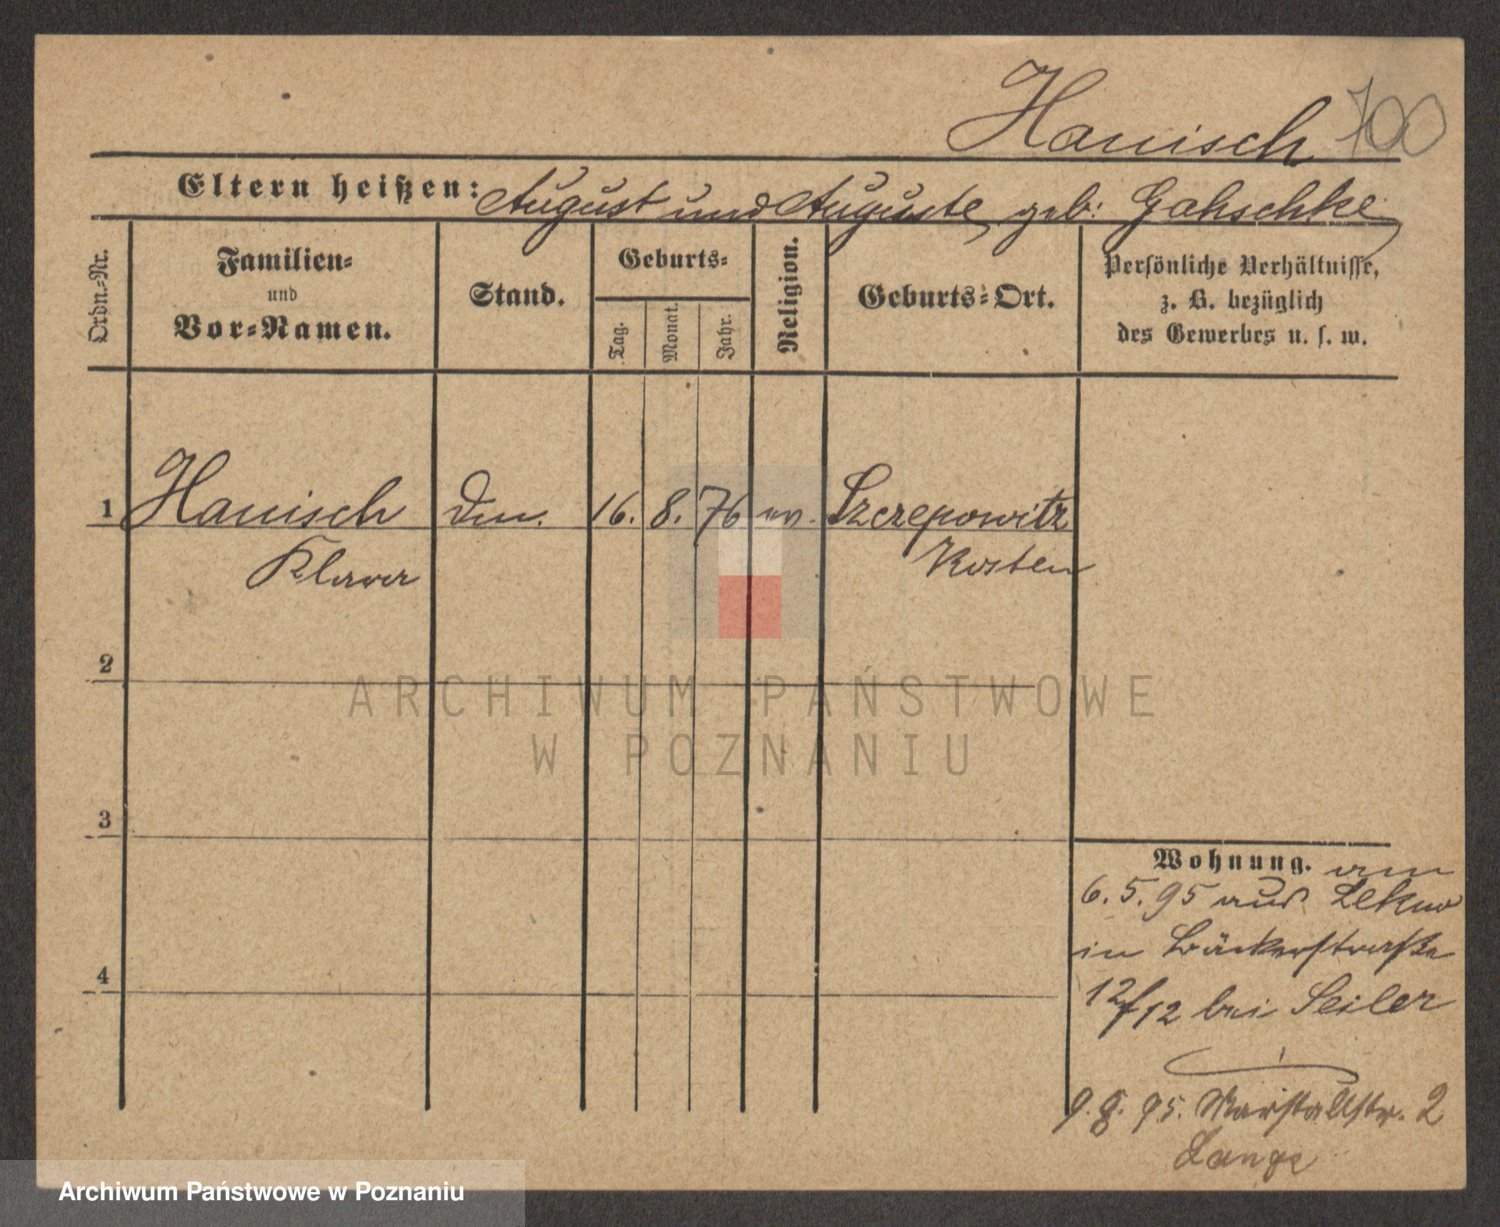 Hanisch 700
Eltern heißen: August und Auguste geb: Gahschke
Ordn.-Nr.
Familien-
und
Vor-Namen.
Stand.
Geburts-
Tag.
Monat.
Jahr.
Religion.
Geburts-Ort.
Persönliche Verhältnisse,
z. B. bezüglich
des Gewerbes u. s. w.
1 Hanisch 16. 8. 76 ev. Szczepowitz
Klara Kosten
2
3
4
Wohnung. am
6. 5. 95 aus Lekno
in Bäckerstraße
12/12 bei Seiler
9. 8. 95. Marstallstr. 2
Lange
ARCHIWUM PAŃSTWOWE
W POZNANIU
Archiwum Państwowe w Poznaniu